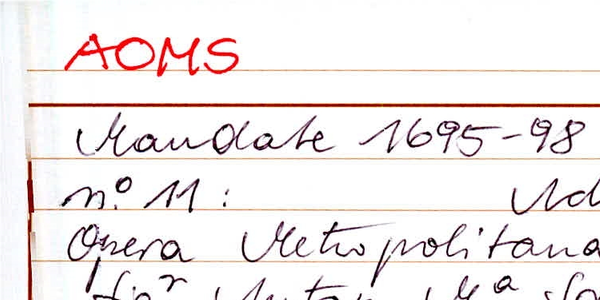 AOMS
Mandate 1695-98
n.º 11:
Opera Metropolitana